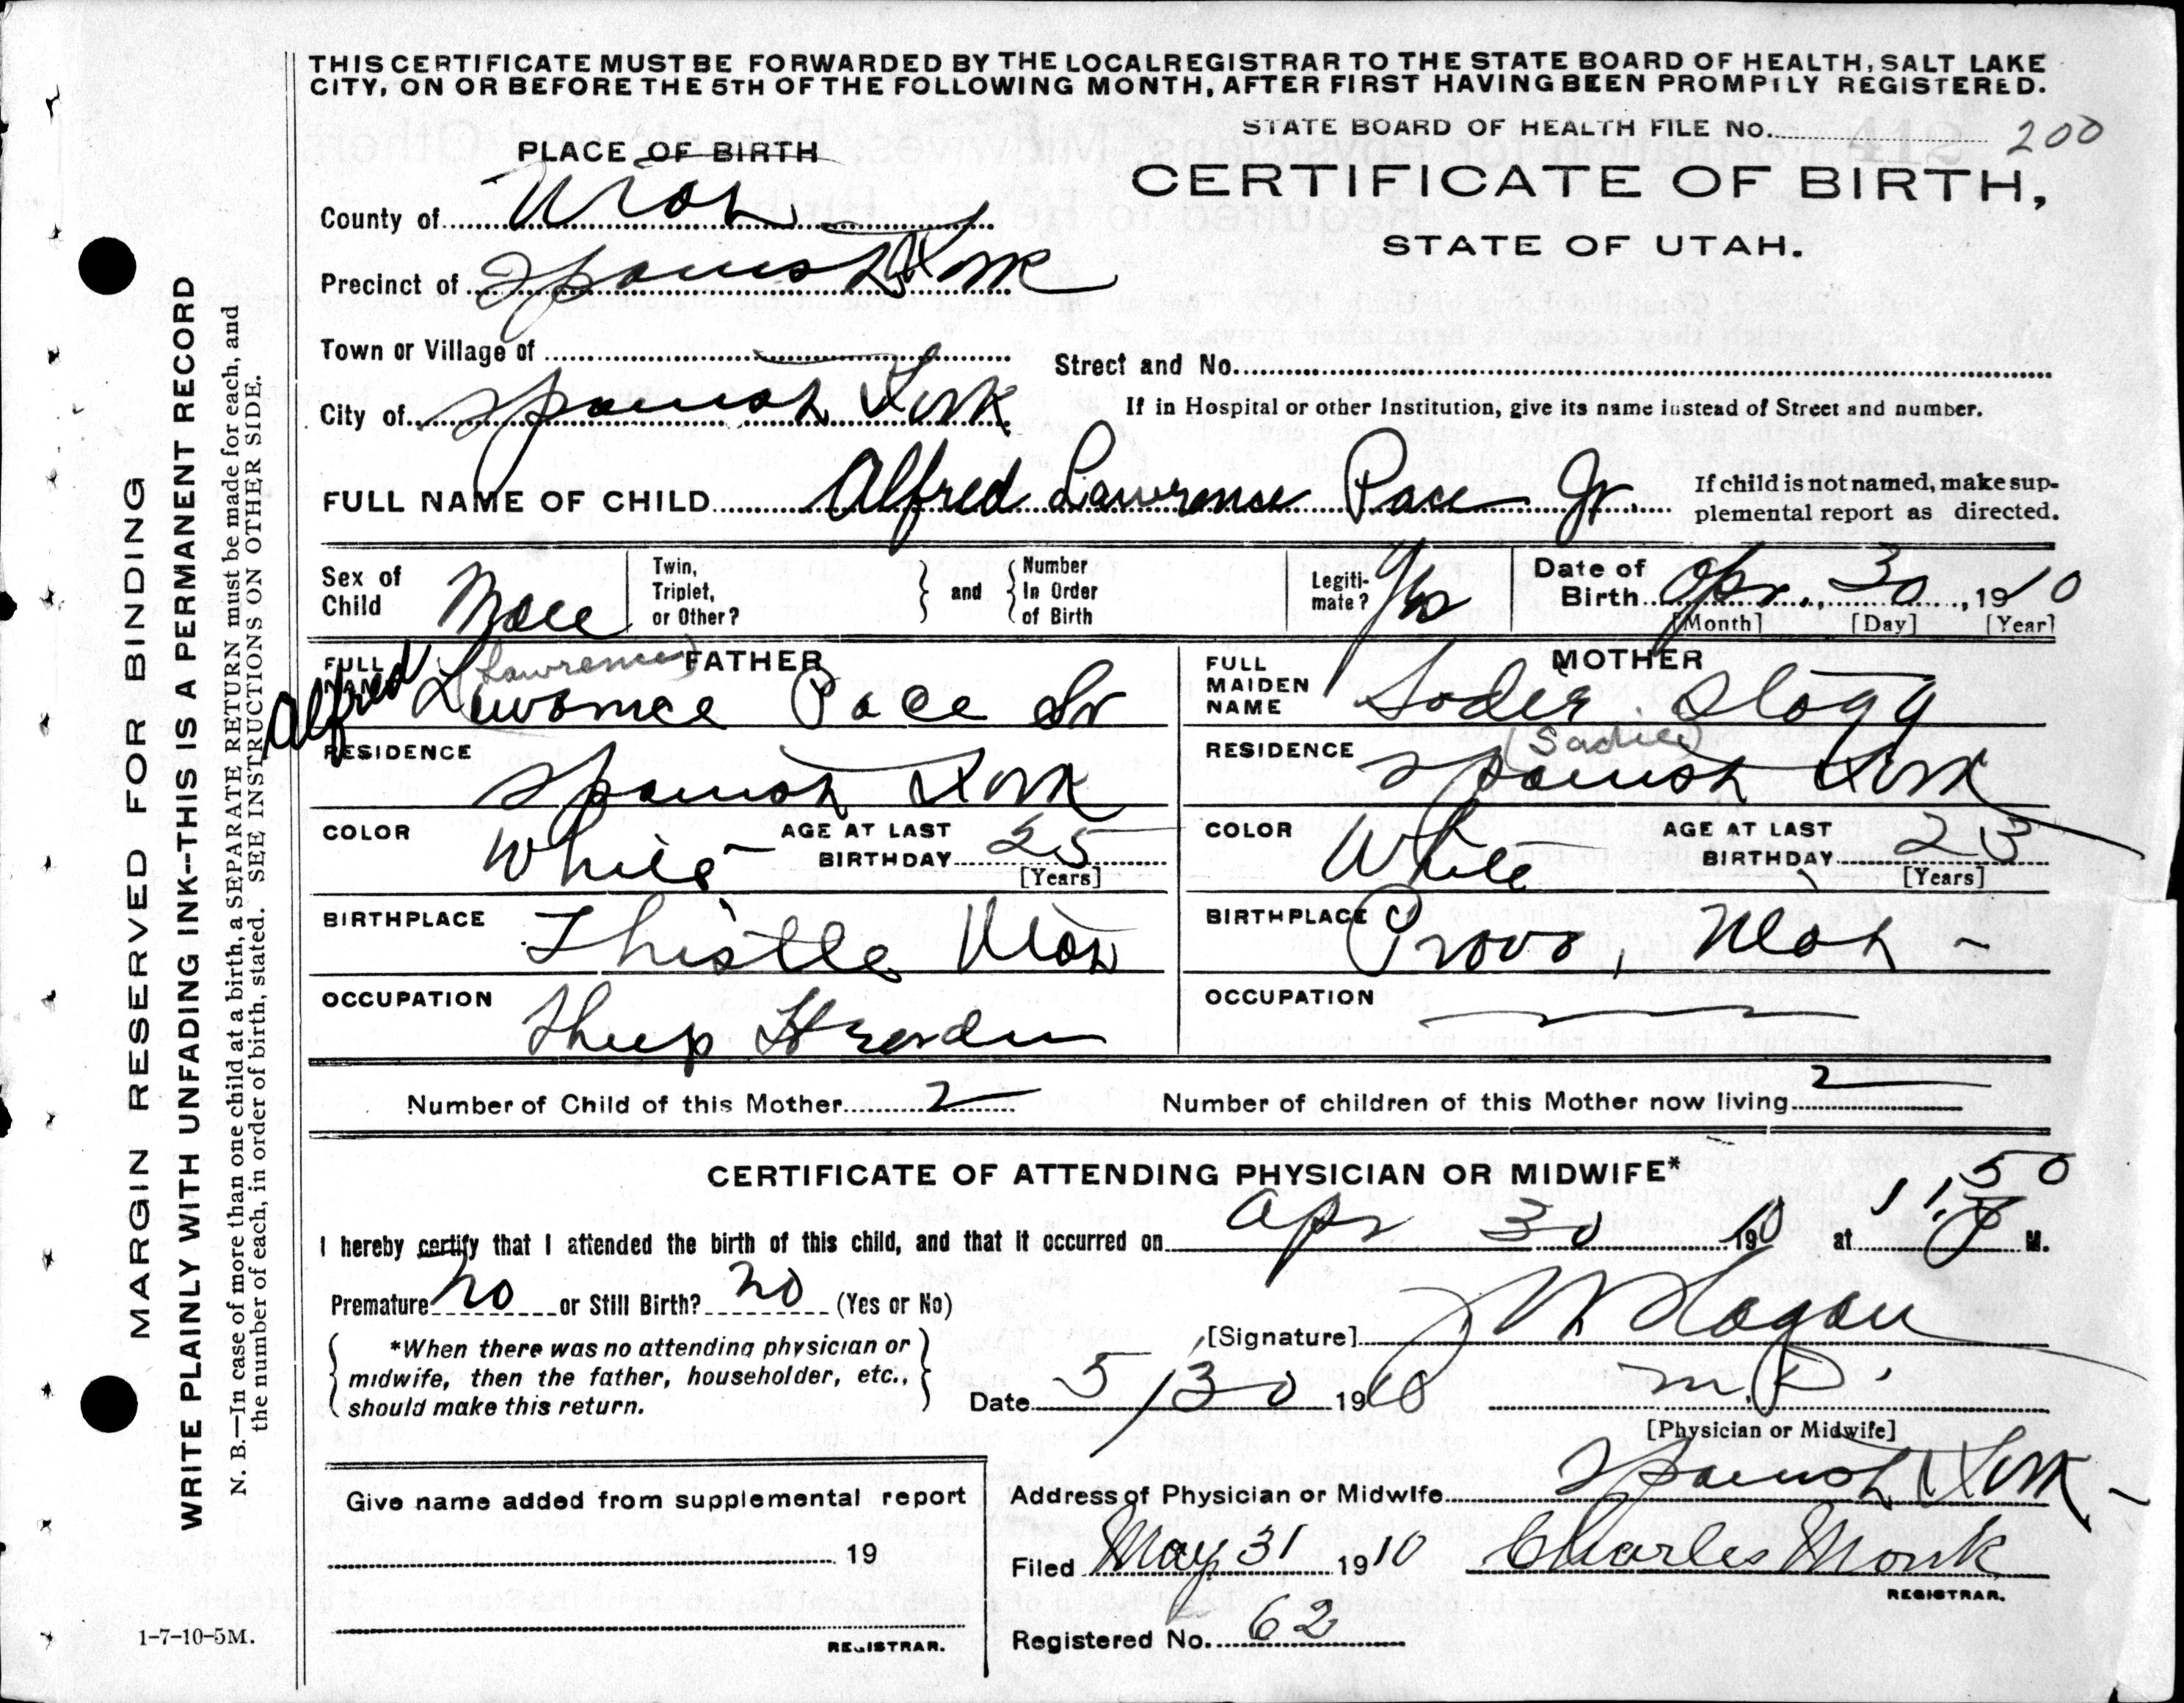 THIS CERTIFICATE MUST BE FORWARDED BY THE LOCAL REGISTRAR TO THE STATE BOARD OF HEALTH, SALT LAKE
CITY, ON OR BEFORE THE 5TH OF THE FOLLOWING MONTH, AFTER FIRST HAVING BEEN PROMPTLY REGISTERED.
STATE BOARD OF HEALTH FILE No. 200
PLACE OF BIRTH
CERTIFICATE OF BIRTH,
STATE OF UTAH.
County of Utah
Precinct of Spanish Fork
Town or Village of
Street and No.
City of Spanish Fork
If in Hospital or other Institution, give its name instead of Street and number.
FULL NAME OF CHILD Alfred Lawrence Pace Jr.
If child is not named, make sup-
plemental report as directed.
Sex of Child Male
Twin, Triplet, or Other?
and
Number In Order of Birth
Legiti-mate? Yes
Date of Birth Apr. 30, 1910
[Month] [Day] [Year]
FATHER
FULL NAME Alfred Lawrence Pace Sr
(Lawrence)
RESIDENCE
Spanish Fork
COLOR White
AGE AT LAST BIRTHDAY 25
[Years]
BIRTHPLACE Thistle Utah
OCCUPATION Sheep Herder
MOTHER
FULL MAIDEN NAME
(Sadie)
RESIDENCE
Spanish Fork
COLOR White
AGE AT LAST BIRTHDAY 23
[Years]
BIRTHPLACE Provo, Utah -
OCCUPATION
Number of Child of this Mother 2
Number of children of this Mother now living 2
CERTIFICATE OF ATTENDING PHYSICIAN OR MIDWIFE*
I hereby certify that I attended the birth of this child, and that it occurred on Apr 30 1910 at 11.50 M.
Premature no or Still Birth? no (Yes or No)
*When there was no attending physician or
midwife, then the father, householder, etc.,
should make this return.
[Signature]
Date 5/30 1910
M.D.
[Physician or Midwife]
Address of Physician or Midwife Spanish Fork -
Give name added from supplemental report
19
REGISTRAR.
Filed May 31 1910 Charles Monk
REGISTRAR.
Registered No. 62
MARGIN RESERVED FOR BINDING
WRITE PLAINLY WITH UNFADING INK--THIS IS A PERMANENT RECORD
N. B.—In case of more than one child at a birth, a SEPARATE RETURN must be made for each, and
the number of each, in order of birth, stated. SEE INSTRUCTIONS ON OTHER SIDE.
1-7-10-5M.